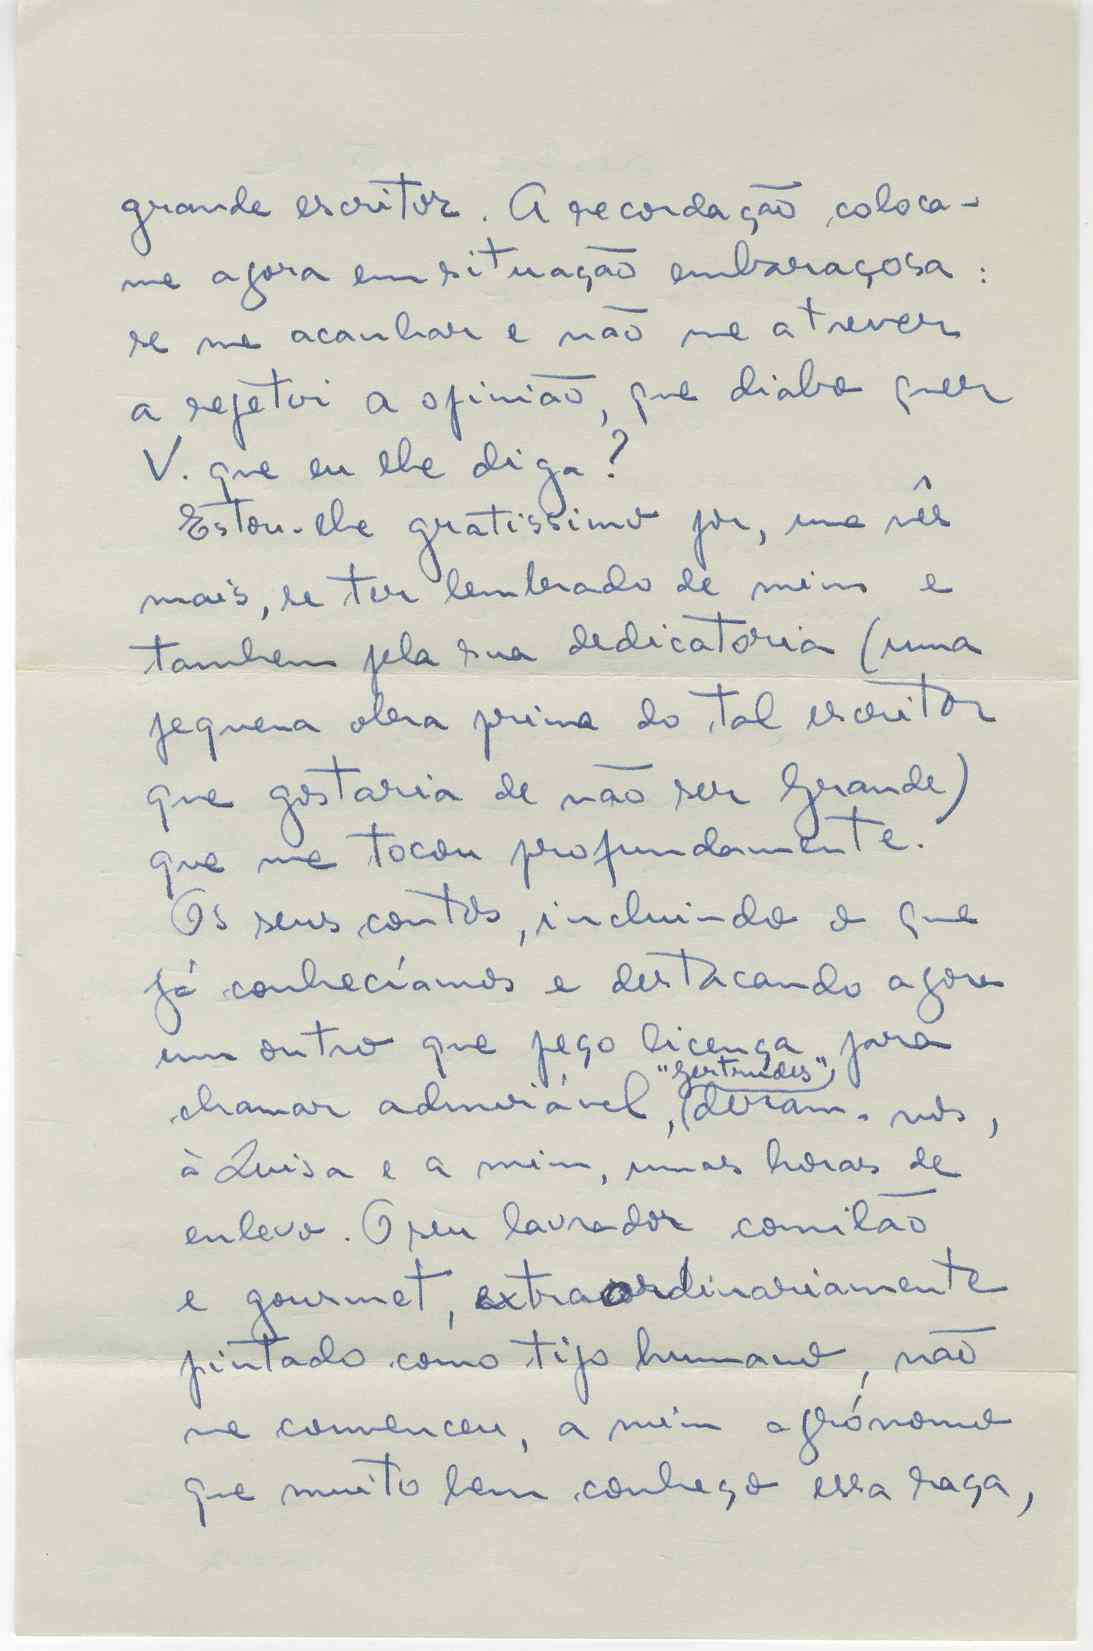 grande escritor. A recordação coloca-
me agora em situação embaraçosa:
se me acanhar e não me atrever
a repetir a opinião, que diabo quer
V. que eu lhe diga?
Estou-lhe gratissimo por, uma vês
mais, se ter lembrado de mim e
tambem pela sua dedicatoria (uma
pequena obra prima do tal escritor
que gostaria de não ser Grande)
que me tocou profundamente.
Os seus contos, incluindo o que
já conhecíamos e destacando agora
um outro que peço licença para
"Gertrudes",
chamar admirável, deram-nos,
à Luisa e a mim, umas horas de
enlevo. O seu lavrador comilão
e gourmet, extraordinariamente
pintado como tipo humano, não
me convenceu, a mim agrónomo
que muito bem conheço essa raça,